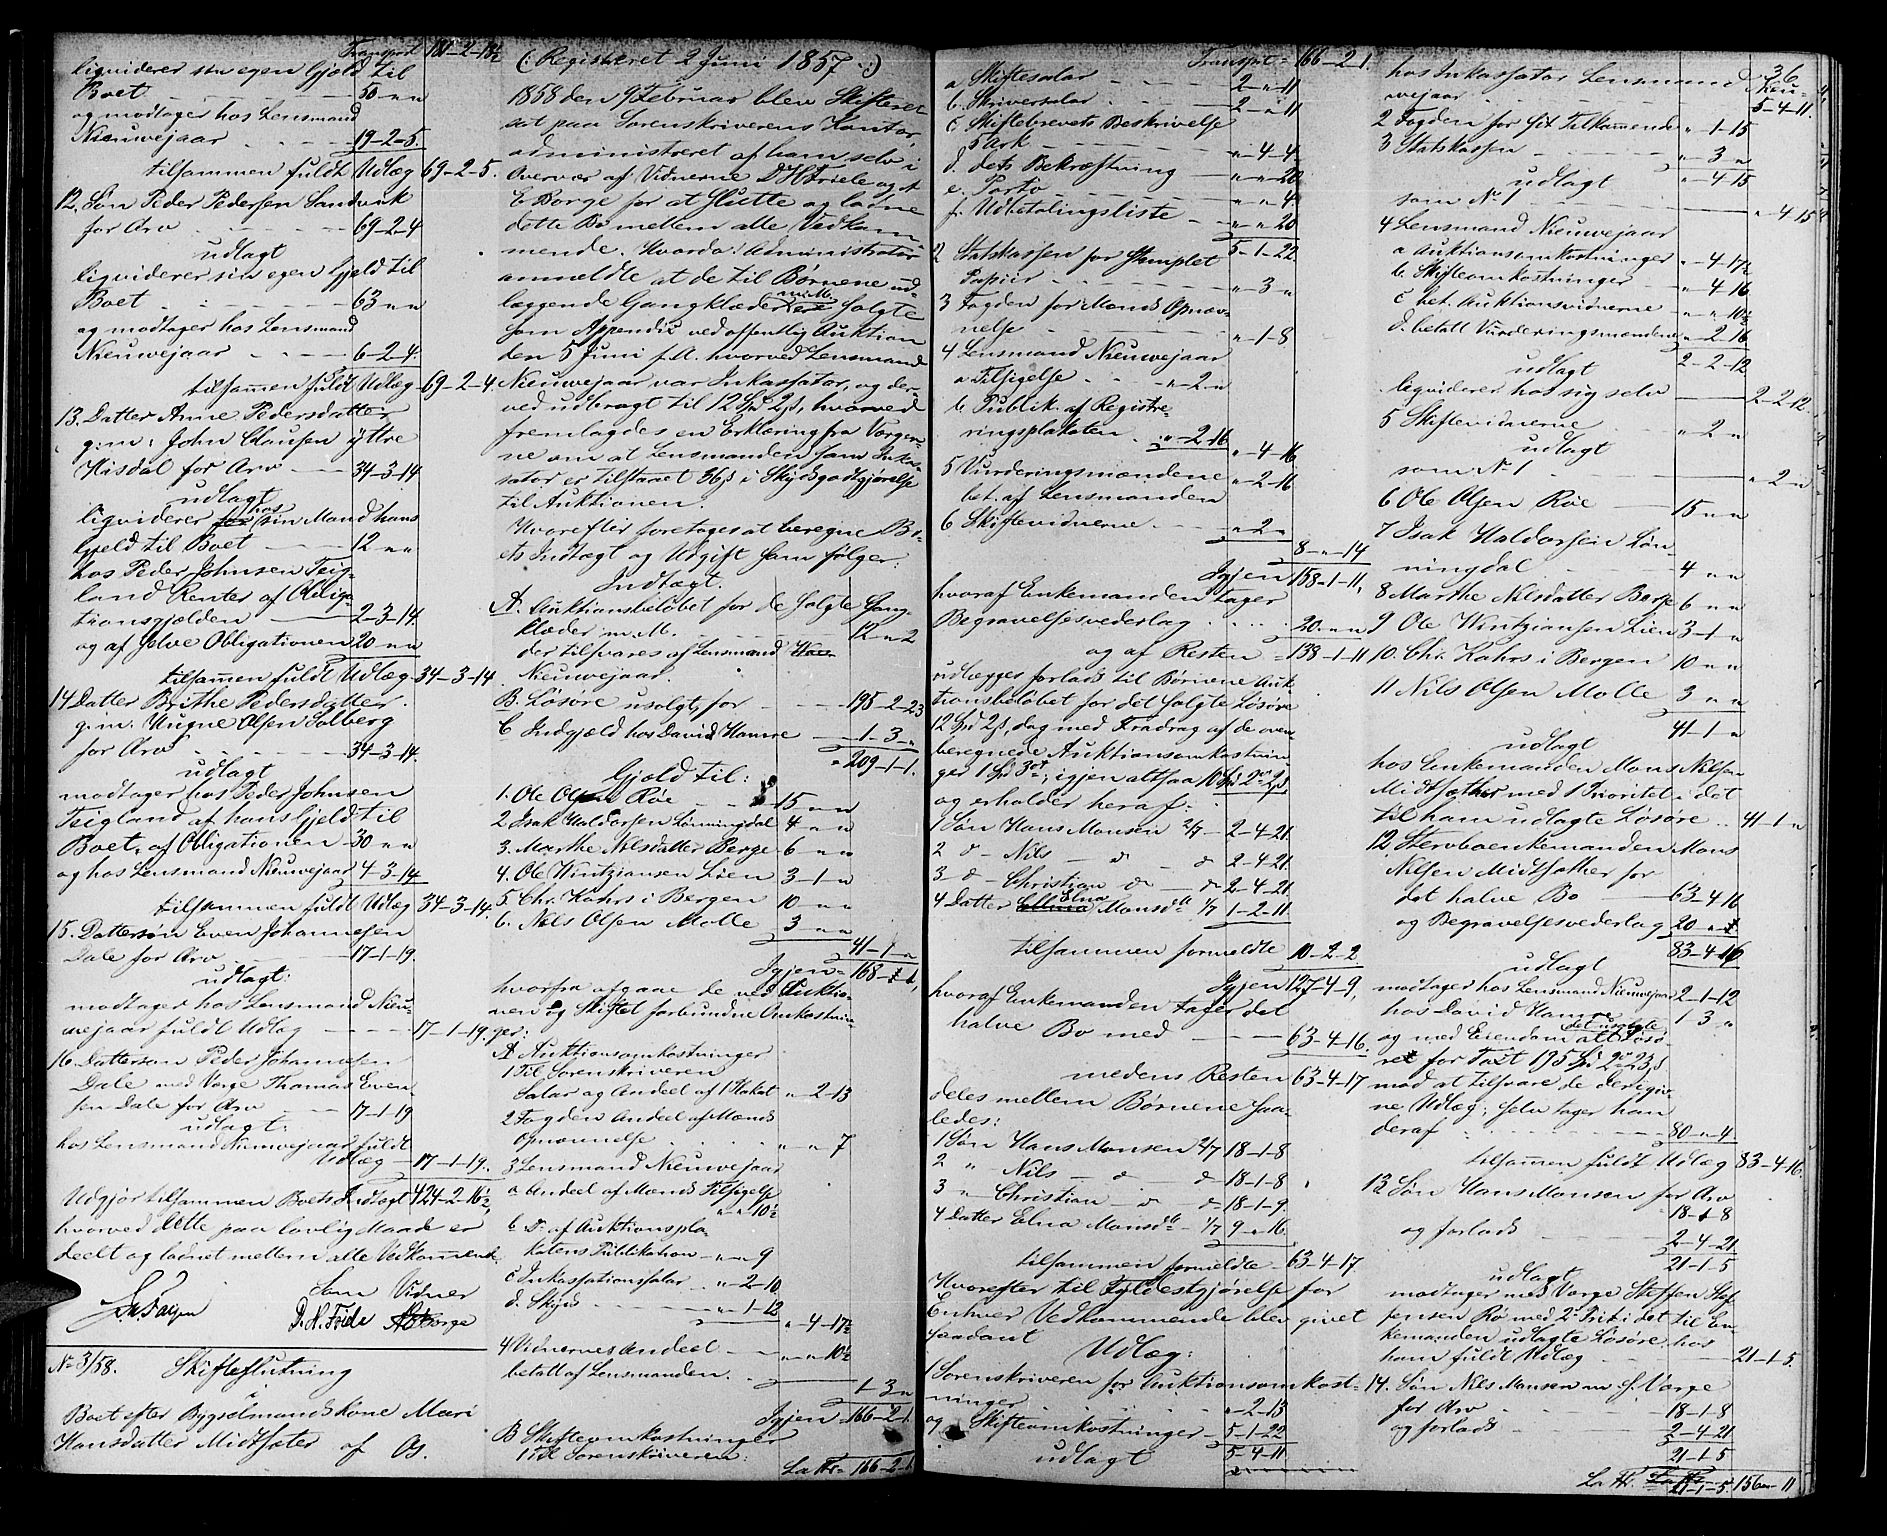 Transport 181-2-13½
liqviderer sin egen Gjeld til
Boet 50 " "
og modtager hos Lensmand
Nieuwejaar 19-2-5.
tilsammen fuldt Udlæg 69-2-5.
12. Søn Peder Pedersen Sandvik
for Arv 69-2-4
udlagt
liqviderer sin egen Gjeld til
Boet 63 " "
og modtager hos Lensmand
Nieuwejaar 6-2-4.
tilsammen fuldt Udlæg 69-2-4.
13. Datter Anne Pedersdatter
gim: John Clausen yttre
Hisdal for Arv 34-3-14
udlagt
liqviderer hos sin Mand hans
Gjeld til Boet 12 " "
hos Peder Johnsen Teig-
land Renter af Obliga-
tionsgjelden 2-3-14
og af selve Obligationen 20 " "
tilsammen fuldt Udlæg 34-3-14
14 Datter Brithe Pedersdatter
gim. Mugne Olsen Solberg
for Arv 34-3-14.
udlagt
modtager hos Peder Johnsen
Teigland af hans Gjeld til
Boet, af Obligationen 30 " "
og hos Lensmand Nieuwejaar 4-3-14
tilsammen fuldt Udlæg 34-3-14.
15. Dattersøn Even Johannesen
Dale for Arv 17-1-19.
udlagt:
modtager hos Lensmand Nieu-
wejaar fuldt Udlæg 17-1-19.
16. Dattersøn Peder Johannesen
Dale med Verge Thomas Even-
sen Dale for Arv 17-1-19
udlagt:
hos Lensmand Nieuwejaar fuldt
Udlæg 17-1-19.
Udgjør tilsammen Boets Indtægt 424-2-16½,
hvorved dette paa lovlig Maade er
deelt og lodnet mellem alle Vedkommende.
Som Vidner
D. H. Friele AEBorge
No 3/58. Skifteslutning
i
Boet efter Bygselmandskone Mari
Hansdatter Midtsæter af Os.
(: Registreret 2 Juni 1857 :)
1858 den 9 Februar blev Skifteret
sat paa Sorenskriverens Kontor,
administreret af ham selv i
Overvær af Vidnerne D H Friele og A
E Borge for at slutte og lodne
dette Bo mellem alle Vedkom-
mende. Hvorda: Administrator
anmeldte at de til Børnene ud-
læggende Gangklæder m: M. solgte
som Appendix ved offentlig Auktion
den 5 Juni f. A. hvorved Lensmand
Nieuwejaar var Inkassator, og der-
ved udbragt til 12 Spd 2 s, hvorved
fremlagdes en Erklæring fra Verger-
ne om at Lensmanden som Inkas-
sator er tilstaaet 36 s i Skydsgodtgjørelse
til Auktionen.
Hvorefter foretages at beregne Bo-
ets Indtægt og Udgift som følger:
Indtægt.
A. Auktionsbeløbet for de solgte Gang-
klæder m. M. 12 " 2
der tilsvares af Lensmand
Nieuwejaar.
B. Løsøre usolgt, for 195-2-23
C Indgjæld hos David Hamre 1-3-"
209-1-1.
Gjæld til:
1. Ole Olsen Røe 15 " "
2 Isak Haldorsen Lønningdal 4 " "
3. Marthe Nilsdatter Berge 6 " "
4. Ole Wintziansen Lien 3-1 "
5. Chr. Kahrs i Bergen 10 " "
6. Nils Olsen Molle 3 " "
41-1-"
Igjen 168-"-1,
hvorfra afgaae de ved Auktio-
nen og Skiftet forbundne Omkostnin-
ger:
A Auktionsomkostninger
1 Til Sorenskriveren
Salar og Andeel af 1 Plakat " 2-13
2 Fogden Andeel af Mænds
Opnævnelse " " 7
3 Lensmand Nieuwejaar
a Andeel af Mænds Tilsigelse
" " 10½
b Do af Auktionspla-
katens Publikation " " 9
c Inkassationssalar " 2-10
d. Skyds " 1-12
" 4-17½
4 Vidnernes Andeel " " 10½
betalt af Lensmanden.
1-3 "
Igjen 166-2-1.
B Skifteomkostninger
1 Til Sorenskriveren:
La Tr. 166-2-1
Transport 166-2-1.
a Skiftesalar 2-"-11
b. Skriversalar 2-"-11
c Skiftebrevets Beskrivelse
5 Ark " 4-4
d. dets Bekræftning " "-20
e. Porto " " 4
f. Udbetalingsliste " " 20
5-1-22
2 Statskassen for stemplet
Papiir " 3 "
3 Fogden for Mænds Opnæv-
nelse " 1-8
4 Lensmand Nieuwejaar
a Tilsigelse " 2 "
b. Publik. af Registre-
ringsplakaten " 2-16
" 4-16
5 Vurderingsmændene " 2-16
bet. af Lensmanden
6 Skiftevidnerne " 2 "
8-"-14
Igjen 158-1-11,
hvoraf Enkemanden tager
Begravelsesvederlag 20 " "
og af Resten 138-1-11
udlægges forlods til Børnene Auk-
tionsbeløbet for det solgte Løsøre
12 Spd 2 s, dog med Fradrag af de oven
beregnede Auktionsomkostnin-
ger 1 Spd 3 ort; igjen altsaa 10 Spd 2 ort 2 s
og erholder heraf:
1 Søn Hans Monsen 2/7 2-4-21
2 do Nils do do 2-4-21.
3 do Christian do do 2-4-21
4 Datter Elna Monsdtr 1/7 1-2-11
tilsammen formeldte 10-2-2.
Igjen 127-4-9,
hvoraf Enkemanden tager det
halve Bo med 63-4-16.
medens Resten 63-4-17
deles mellem Børnene saa-
ledes:
1 Søn Hans Monsen 2/7 18-1-8
2 " Nils do do 18-1-8
3 " Christian do do 18-1-9
4 Datter Elna Monsdtr 1/7 9 " 16.
tilsammen formeldte 63-4-17.
Hvorefter til Fyldestgjørelse for
Enhver Vedkommende blev givet
saadant
Udlæg:
1 Sorenskriveren for Auktionsomkost-
ninger " 2-13
og Skifteomkostninger 5-1-22
5-4-11
udlagt
36
hos Inkassator Lensmand Nieu-
wejaar 5-4-11.
2 Fogden for sit Tilkommende " 1-15
3 Statskassen " 3 "
" 4-15
udlagt
som No 1 " 4 15
4 Lensmand Nieuwejaar
a Auktionsomkostninger " 4-17½
b. Skifteomkostninger " 4-16
c bet. Auktionsvidnerne " " 10½
d. betalt Vurderingsmændene " 2 16
2-2-12
udlagt
liqviderer hos sig selv 2-2-12.
5 Skiftevidnerne " 2 "
udlagt
som No 1 " 2 "
6 Ole Olsen Røe 15 " "
7 Isak Haldorsen Løn-
ningdal 4 " "
8 Marthe Nilsdatter Berge 6 " "
9 Ole Wintziansen Lien 3-1 "
10. Chr. Kahrs i Bergen 10 " "
11 Nils Olsen Molle 3 " "
41-1 "
udlagt
hos Enkemanden Mons Nilsen
Midtsæther med 1 Prioritet i det
til ham udlagte Løsøre 41-1 "
12 Stervboenkemanden Mons
Nilsen Midtsæther for
det halve Bo 63-4-16
og Begravelsesvederlag 20 " "
83-4-16
udlagt
modtager hos Lensmand Nieuwejaar 2-1-12
hos David Hamre 1 3 "
og med Eiendom alt det usolgte Løsø-
ret for Taxt 195 Spd 2 ort 23 s
mod at tilsvare de derigiv-
ne Udlæg; selv tager han
deraf 80 " 4
tilsammen fuldt Udlæg 83-4-16
13 Søn Hans Monsen for Arv
18-1-8
og forlods 2-4-21
21-1-5
udlagt
modtager med Verge Steffen Stef-
fensen Rø med 2 Prit i det til En-
kemanden udlagte Løsøre hos
ham fuldt Udlæg 21-1-5.
14. Søn Nils Monsen m f. Verge
for Arv 18-1-8
og forlods 2-4-21
21-1-5
La Tr. 21-1-5. 156 " 11